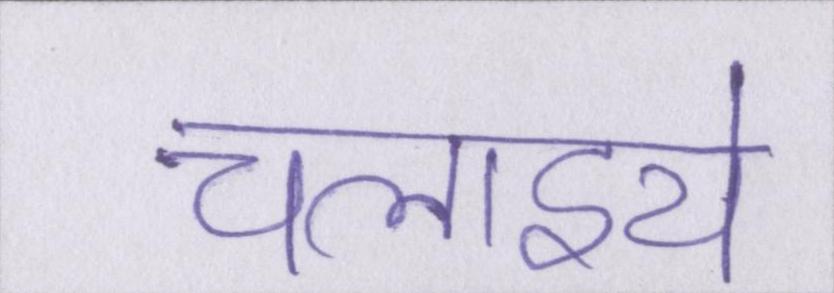 चलाइये